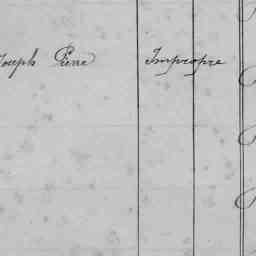 Joseph Pierre Impropre